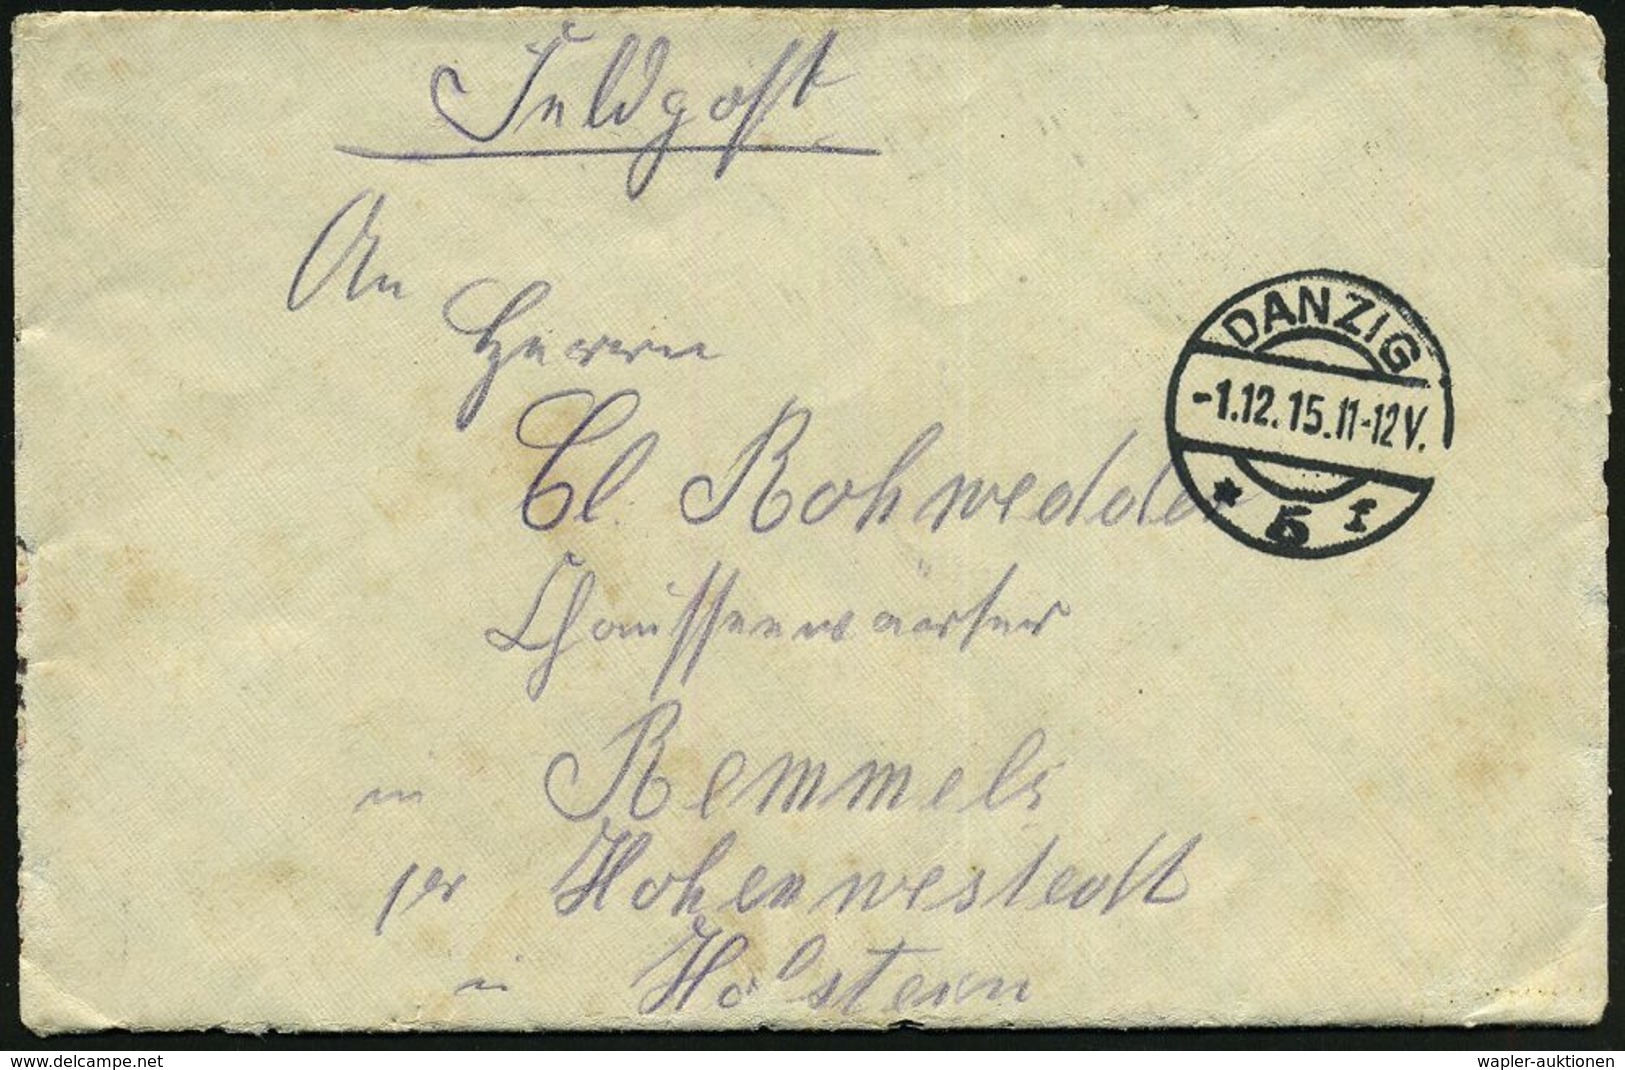 Feldpost
An
Herrn
Cl. Rohwedder
Chausseewärter
in Remmels
per Hohenwestedt
in Holstein
DANZIG
-1.12.15.11-12V.
* 5 f
www.delcampe.net
wapler-auktionen